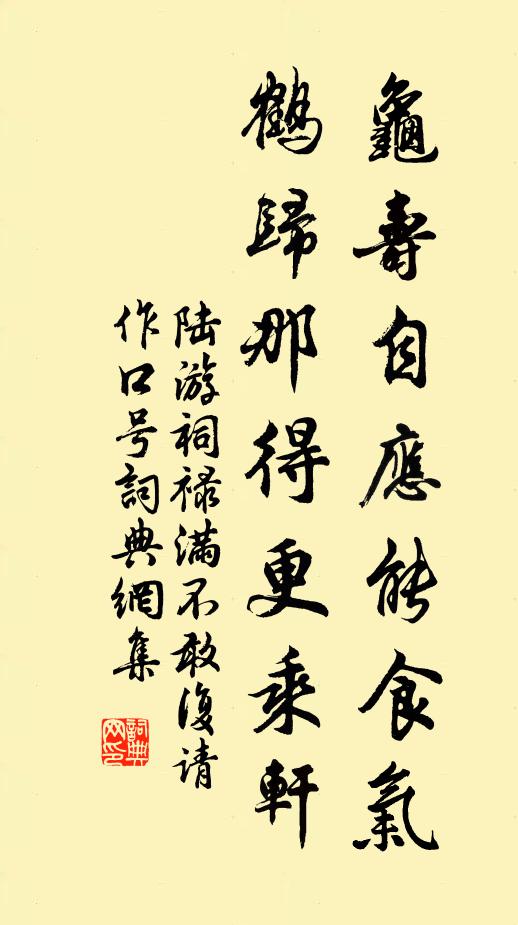 龜壽自應能食氣
鶴歸那得更乘軒
陆游祠禄满不敢復请
作口号詞典網集
詞典
网印